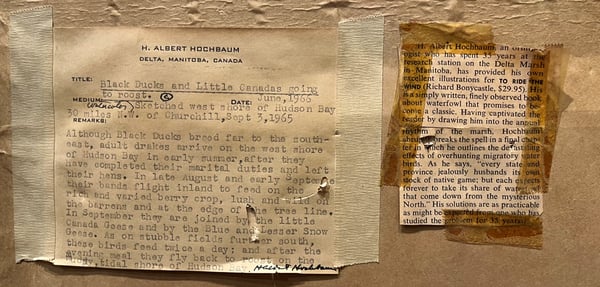 H. ALBERT HOCHBAUM
DELTA, MANITOBA, CANADA
TITLE: Black Ducks and Little Canadas going
to roost. ©
MEDIUM: (Watercolor) Sketched west shore of Hudson Bay DATE: June, 1965
30 miles N.W. of Churchill, Sept 3, 1965
REMARKS:
Although Black Ducks breed far to the south-
east, adult drakes arrive on the west shore
of Hudson Bay in early summer, after they
have completed their marital duties and left
their hens. In late August and early September
these bands flight inland to feed on the
rich and varied berry crop, lush and wild on
the barrens and at the edge of the tree line.
In September they are joined by the little
Canada Geese and by the Blue and Lesser Snow
Geese. As on stubble fields further south,
these birds feed twice a day; and after the
evening meal they fly back to roost on the
muddy, tidal shore of Hudson Bay. H. Albert Hochbaum
H. Albert Hochbaum, an
ogist who has spent 35 years at the
research station on the Delta Marsh
in Manitoba, has provided his own
excellent illustrations for TO RIDE THE
WIND (Richard Bonycastle, $29.95). His
is a simply written, finely observed book
about waterfowl that promises to
become a classic. Having captivated the
reader by drawing him into the annual
rhythm of the marsh, Hochbaum
breaks the spell in a final
ter in which he outlines the
effects of overhunting migratory
birds. As he says, "every state and
province jealously husbands its own
stock of native game; but each expects
forever to take its share of
that come down from the mysterious
North." His solutions are as practicable
as might be expected from one who has
studied the problem for 35 years.